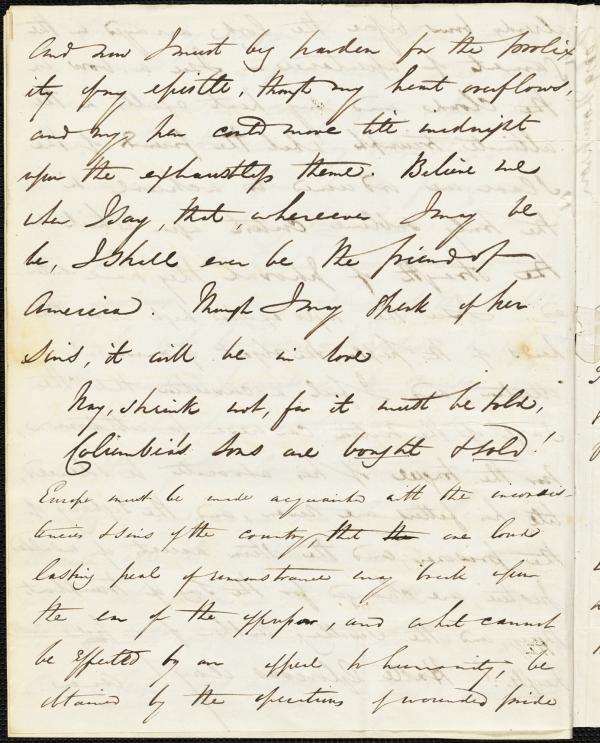 And now I must beg pardon for the prolix
ity of my epistle, though my heart overflows,
and my pen could move till midnight
upon the exhaustless theme. Believe me
when I say, that, whereever I may be
be, I shall ever be the friend of
America. Though I may speak of her
sins, it will be in love
Nay, shrink not, for it must be told,
Columbia's sons are bought & sold!
Europe must be made acquainted with the inconsis-
tencies & sins of the country, that the one loud
lasting peal of remonstrance may break upon
the ear of the oppressor, and what cannot
be effected by an appeal to humanity, be
obtained by the operations of wounded pride